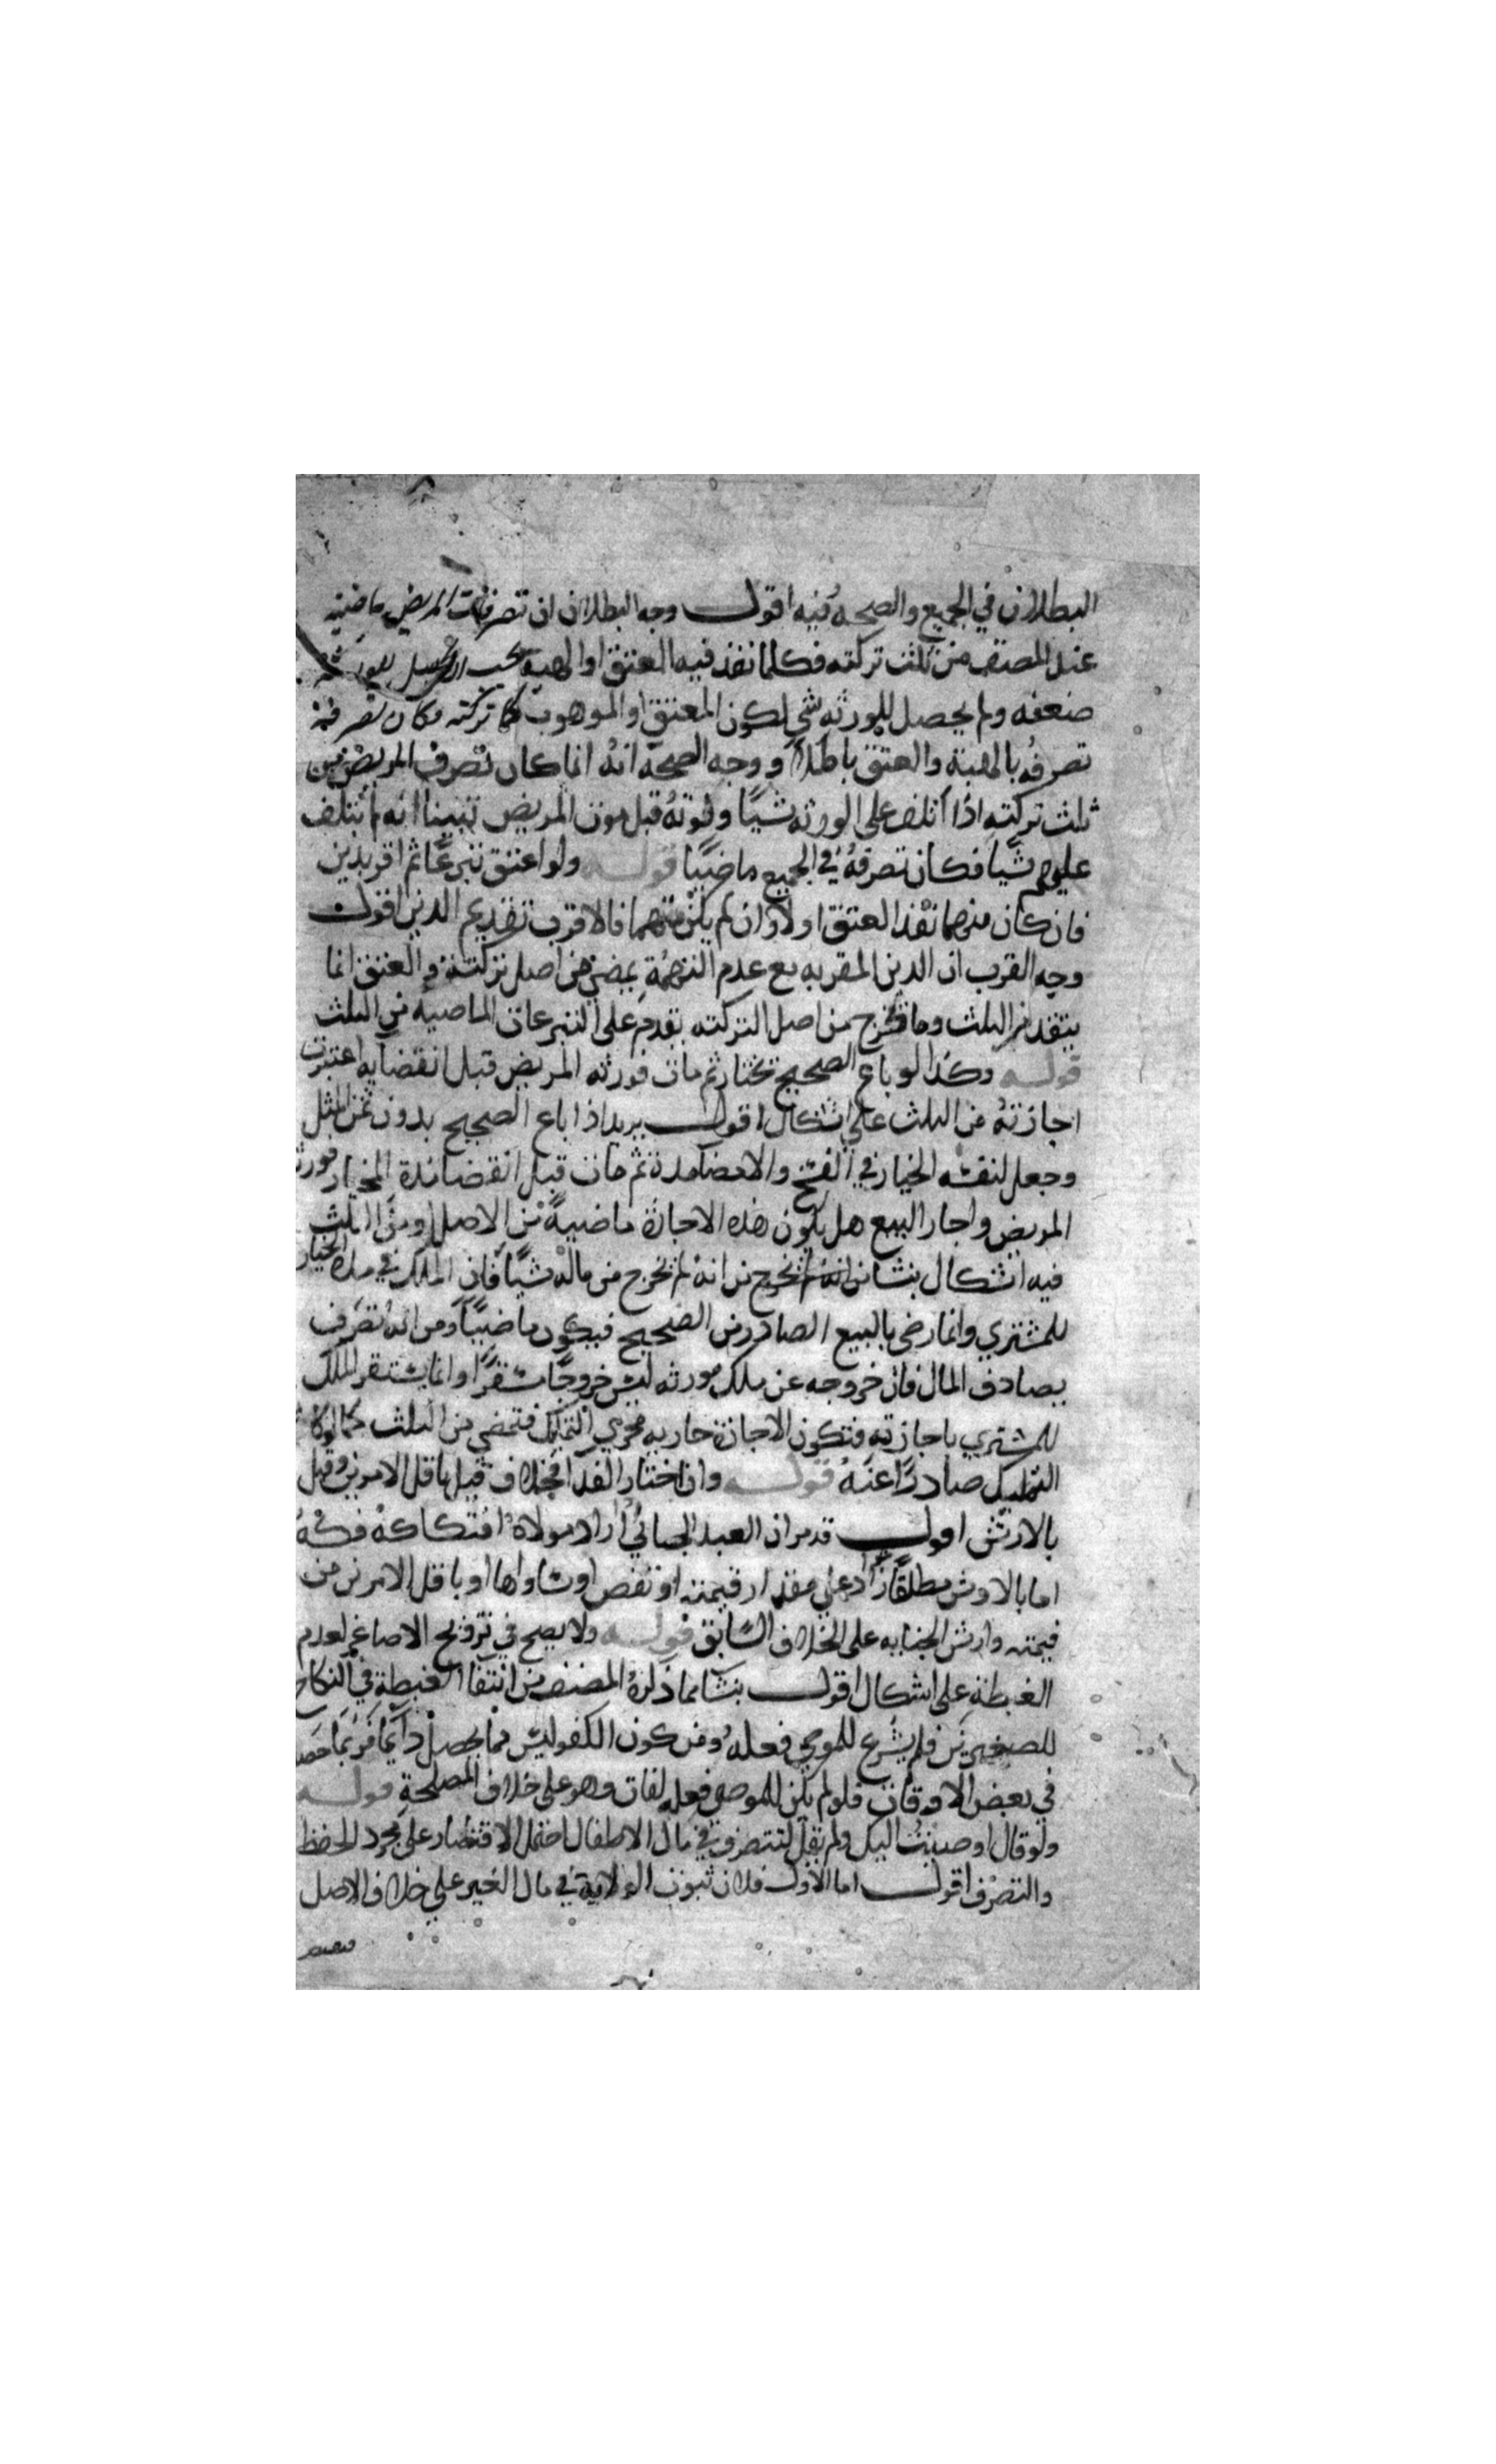 البطلان في الجميع والصحه فيه اقول وجه البطلان ان تصرفات المريض ماضيه
عند المصنف من ثلث تركته فكلما نفذ فيه العتق او الهبه يجب ان يحصل للورثه
ضعفه ولم يحصل للورثه شي لكون المعتق او الموهوب كل تركته فكان تصرفه
تصرفه بالهبة والعتق باطلا ووجه الصحة انه انما كان تصرف المريض من
ثلث تركته اذا اتلف على الورثه شيا وبموته قبل موت المريض تبينا انه لم يتلف
عليهم شيا فكان تصرفه في الجميع ماضيا قوله ولو اعتق تبرعا ثم اقر بدين
فان كان متهما نفذ العتق اولا وان لم يكن متهما فالاقرب تقديم الدين اقول
وجه القرب ان الدين المقر به مع عدم التهمة يمضي من اصل تركته والعتق انما
ينفذ من الثلث وما يخرج من اصل التركته يقدم على التبرعات الماضيه من الثلث
قوله وكذا لو باع الصحيح بخيار ثم مات فورثه المريض قبل انقضايه اعتبرت
اجازته من الثلث على اشكال اقول يريد اذا باع الصحيح بدون ثمن المثل
وجعل لنفسه الخيار في الفسخ والامضا مدة ثم مات قبل انقضا مدة الخيار فورثه
المريض واجار البيع هل يكون هذه الاجازة ماضية من الاصل او من الثلث
فيه اشكال ينشا من انه لم يخرج من انه لم يخرج من ماله شيا فان الملك في مدة الخيار
للمشتري وانما رضي بالبيع الصادر من الصحيح فيكون ماضيا ومن انه تصرف
يصادف المال فان خروجه عن ملك مورثه ليس خروجا مستقرا وانما يستقر الملك
للمشتري باجازته فتكون الاجازة جاريه مجري التمليك فتمضي من الثلث كما لو كان
التمليك صادرا عنه قوله وان اختار الفدا فخلاف قيل باقل الامرين وقيل
بالارش اقول قد مر ان العبد الجاني اذا اراد مولاه افتكاكه فكه
اما بالارش مطلقا زاد على مقدار قيمته او نقص او ساواها او باقل الامرين من
قيمته وارش الجنايه على الخلاف السابق قوله ولا يصح في تزويج الاصاغر لعدم
الغبطة على اشكال اقول ينشا مما ذكره المصنف من انتفا الغبطة في النكاح
للصغيرين فلم يشرع للموصي فعله ومن كون الكفو ليس مما يحصل دائما فربما حصل
في بعض الاوقات فلو لم يكن للموصي فعله لفات وهو على خلاف المصلحة قوله
ولو قال اوصيت اليك ولم يقل لتتصرف في مال الاطفال احتمل الاقتصار على مجرد الحفظ
والتصرف اقول اما الاول فلان ثبوت الولاية في مال الغير على خلاف الاصل